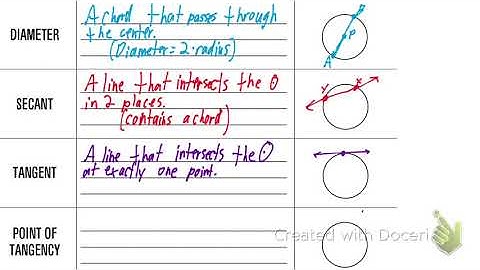 DIAMETER
A chord that passes through
the center.
(Diameter = 2·radius)
P
A
SECANT
A line that intersects the ʘ
in 2 places.
(contains a chord)
Y
X
TANGENT
A line that intersects the ʘ
at exactly one point.
POINT OF
TANGENCY
Created with Doceri